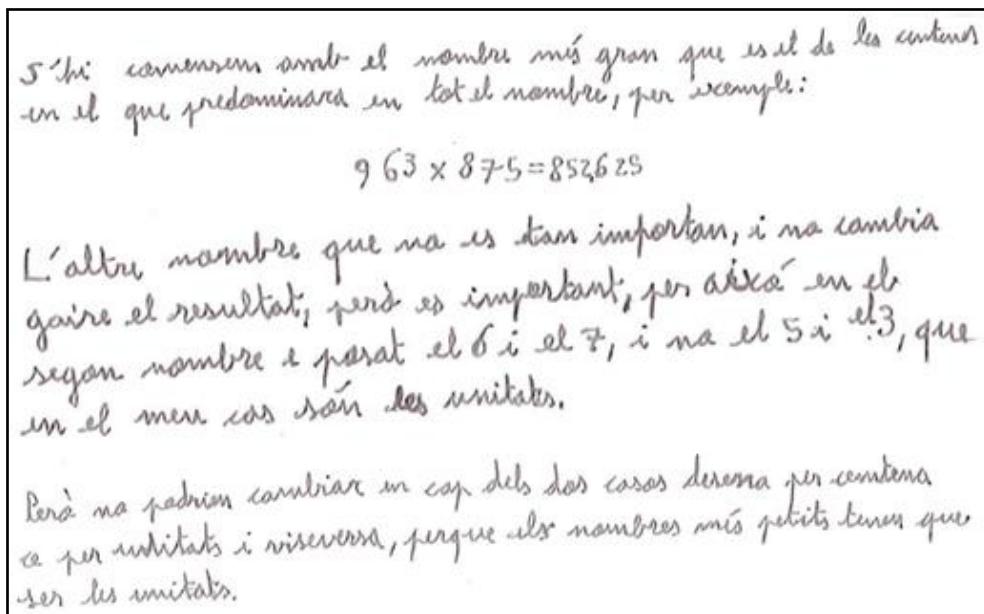 S'hi comensem amb el nombre més gran que es el de les centenes
en el que predominara en tot el nombre, per exemple:
9 63 x 875=852,625
L'altre nombre que no es tan importan, i no cambia
gaire el resultat, però es important, per aixó en el
segon nombre e posat el 6 i el 7, i no el 5 i el 3, que
en el meu cas són les unitats.
Però no podrien cambiar en cap dels dos casos desena per centena
o per unitats i viseversa, perque els nombres més petits tenen que
ser les unitats.